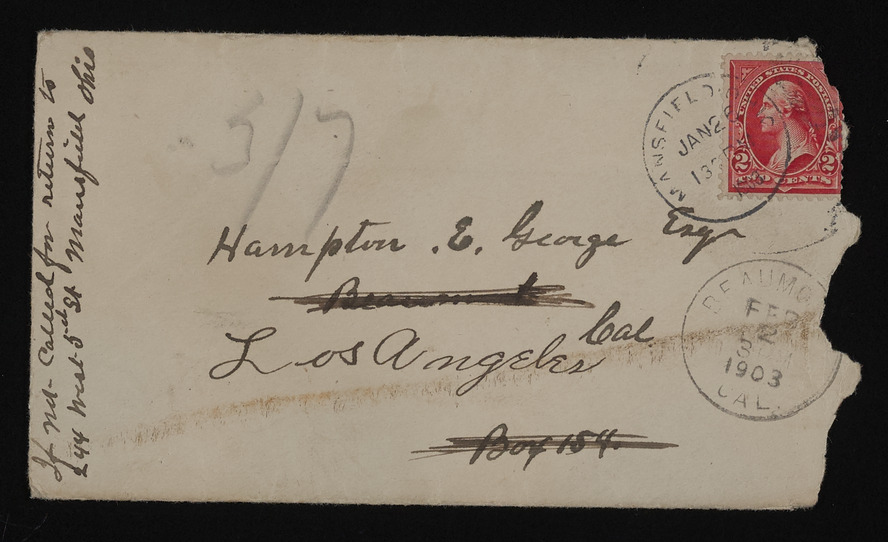 If not Called for return to
244 West 5th St Mansfield Ohio
317
UNITED STATES POSTAGE
2 2
TWO CENTS
MANSFIELD
JAN 2
Hampton . E. George Esqr
Beaumont
Los Angeles Cal
Box 154
BEAUMO
FEB
2
1903
CAL.